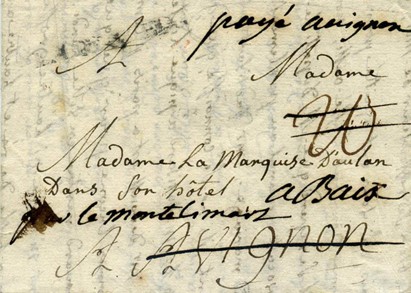 A payé avignon
Madame
Madame La Marquise Daulan
Dans son hôtel a Baix
par le montelimart
A Avignon